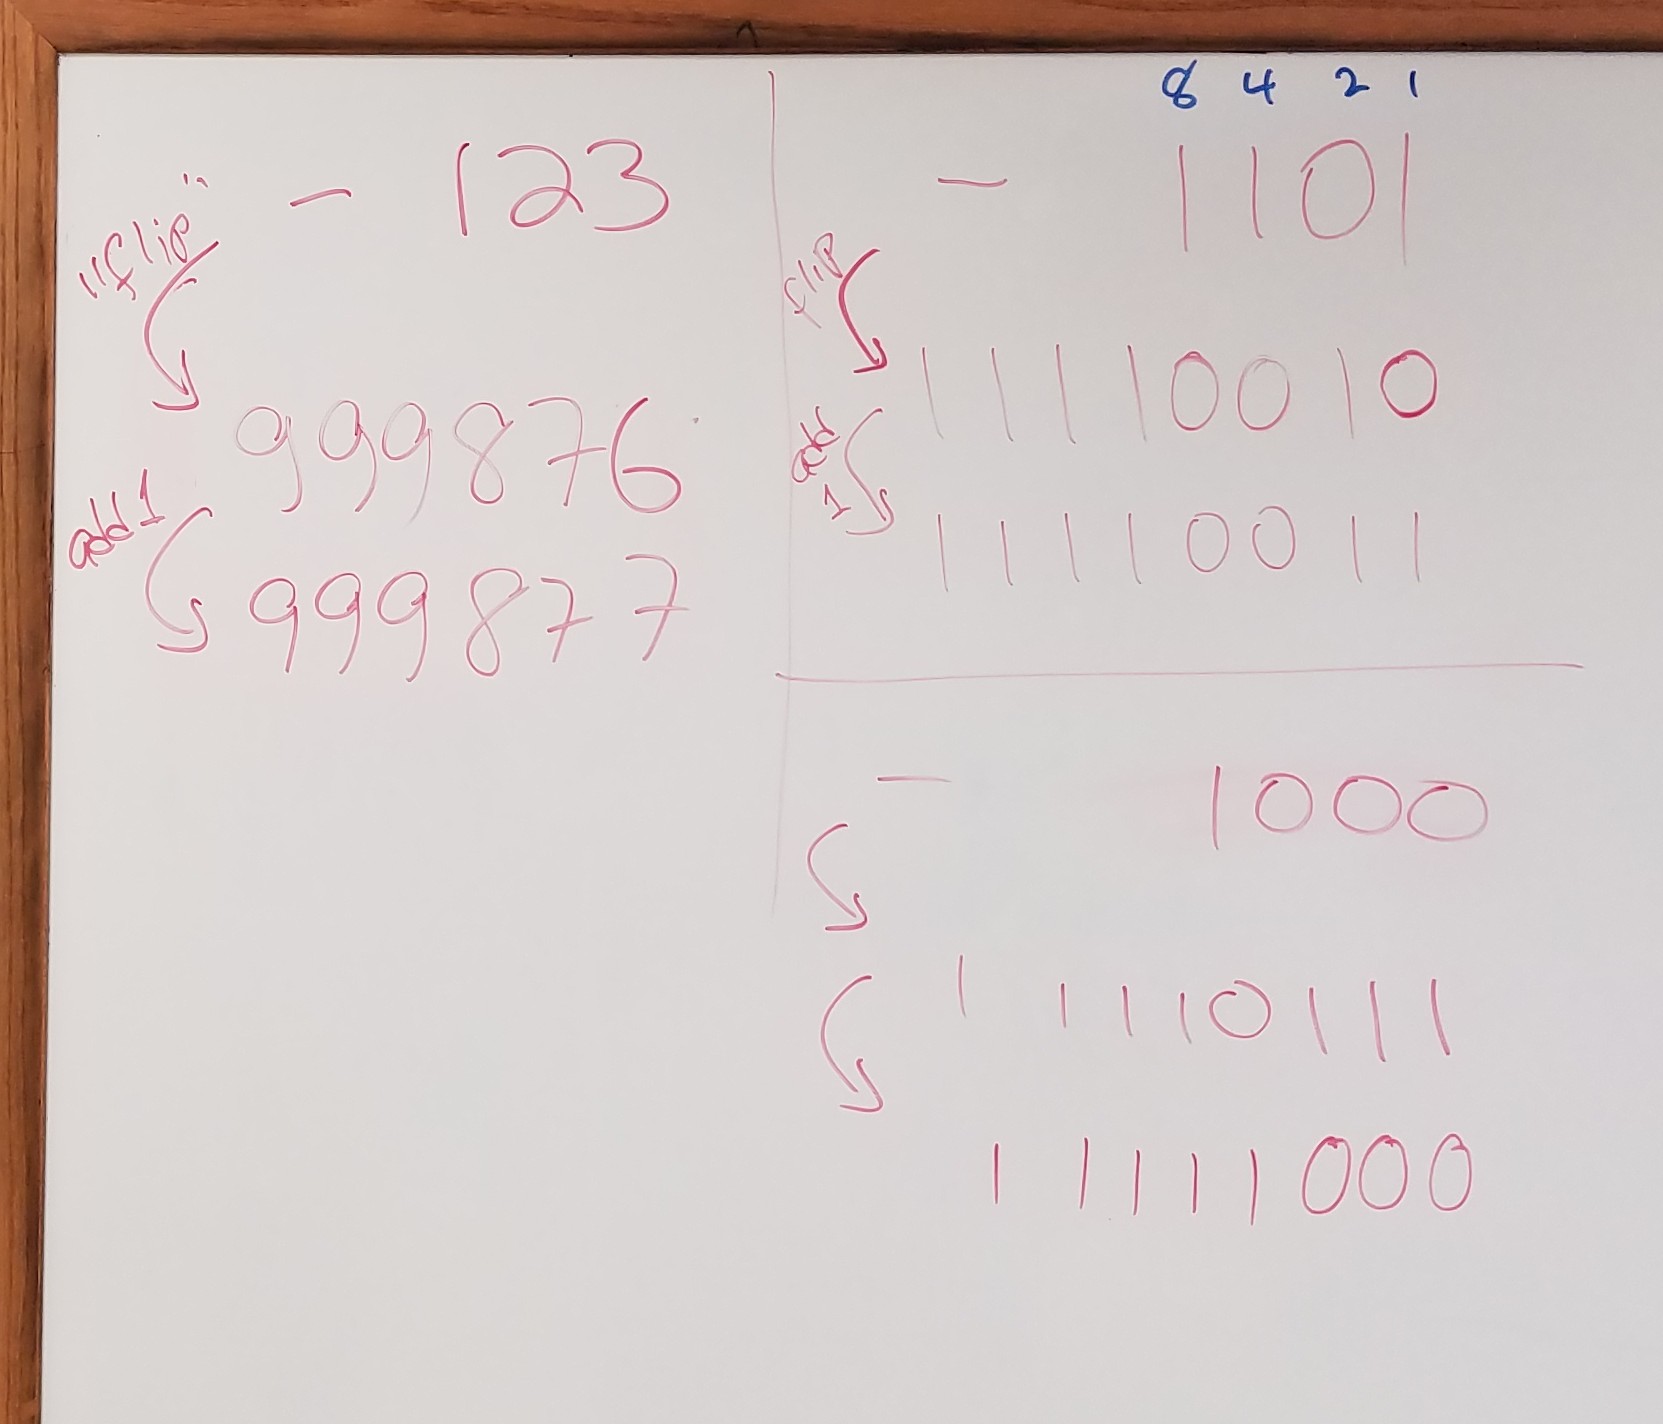 - 123
"flip"
999876
add 1
999877
8 4 2 1
- 1101
flip
11110010
add 1
11110011
- 1000
11110111
11111000